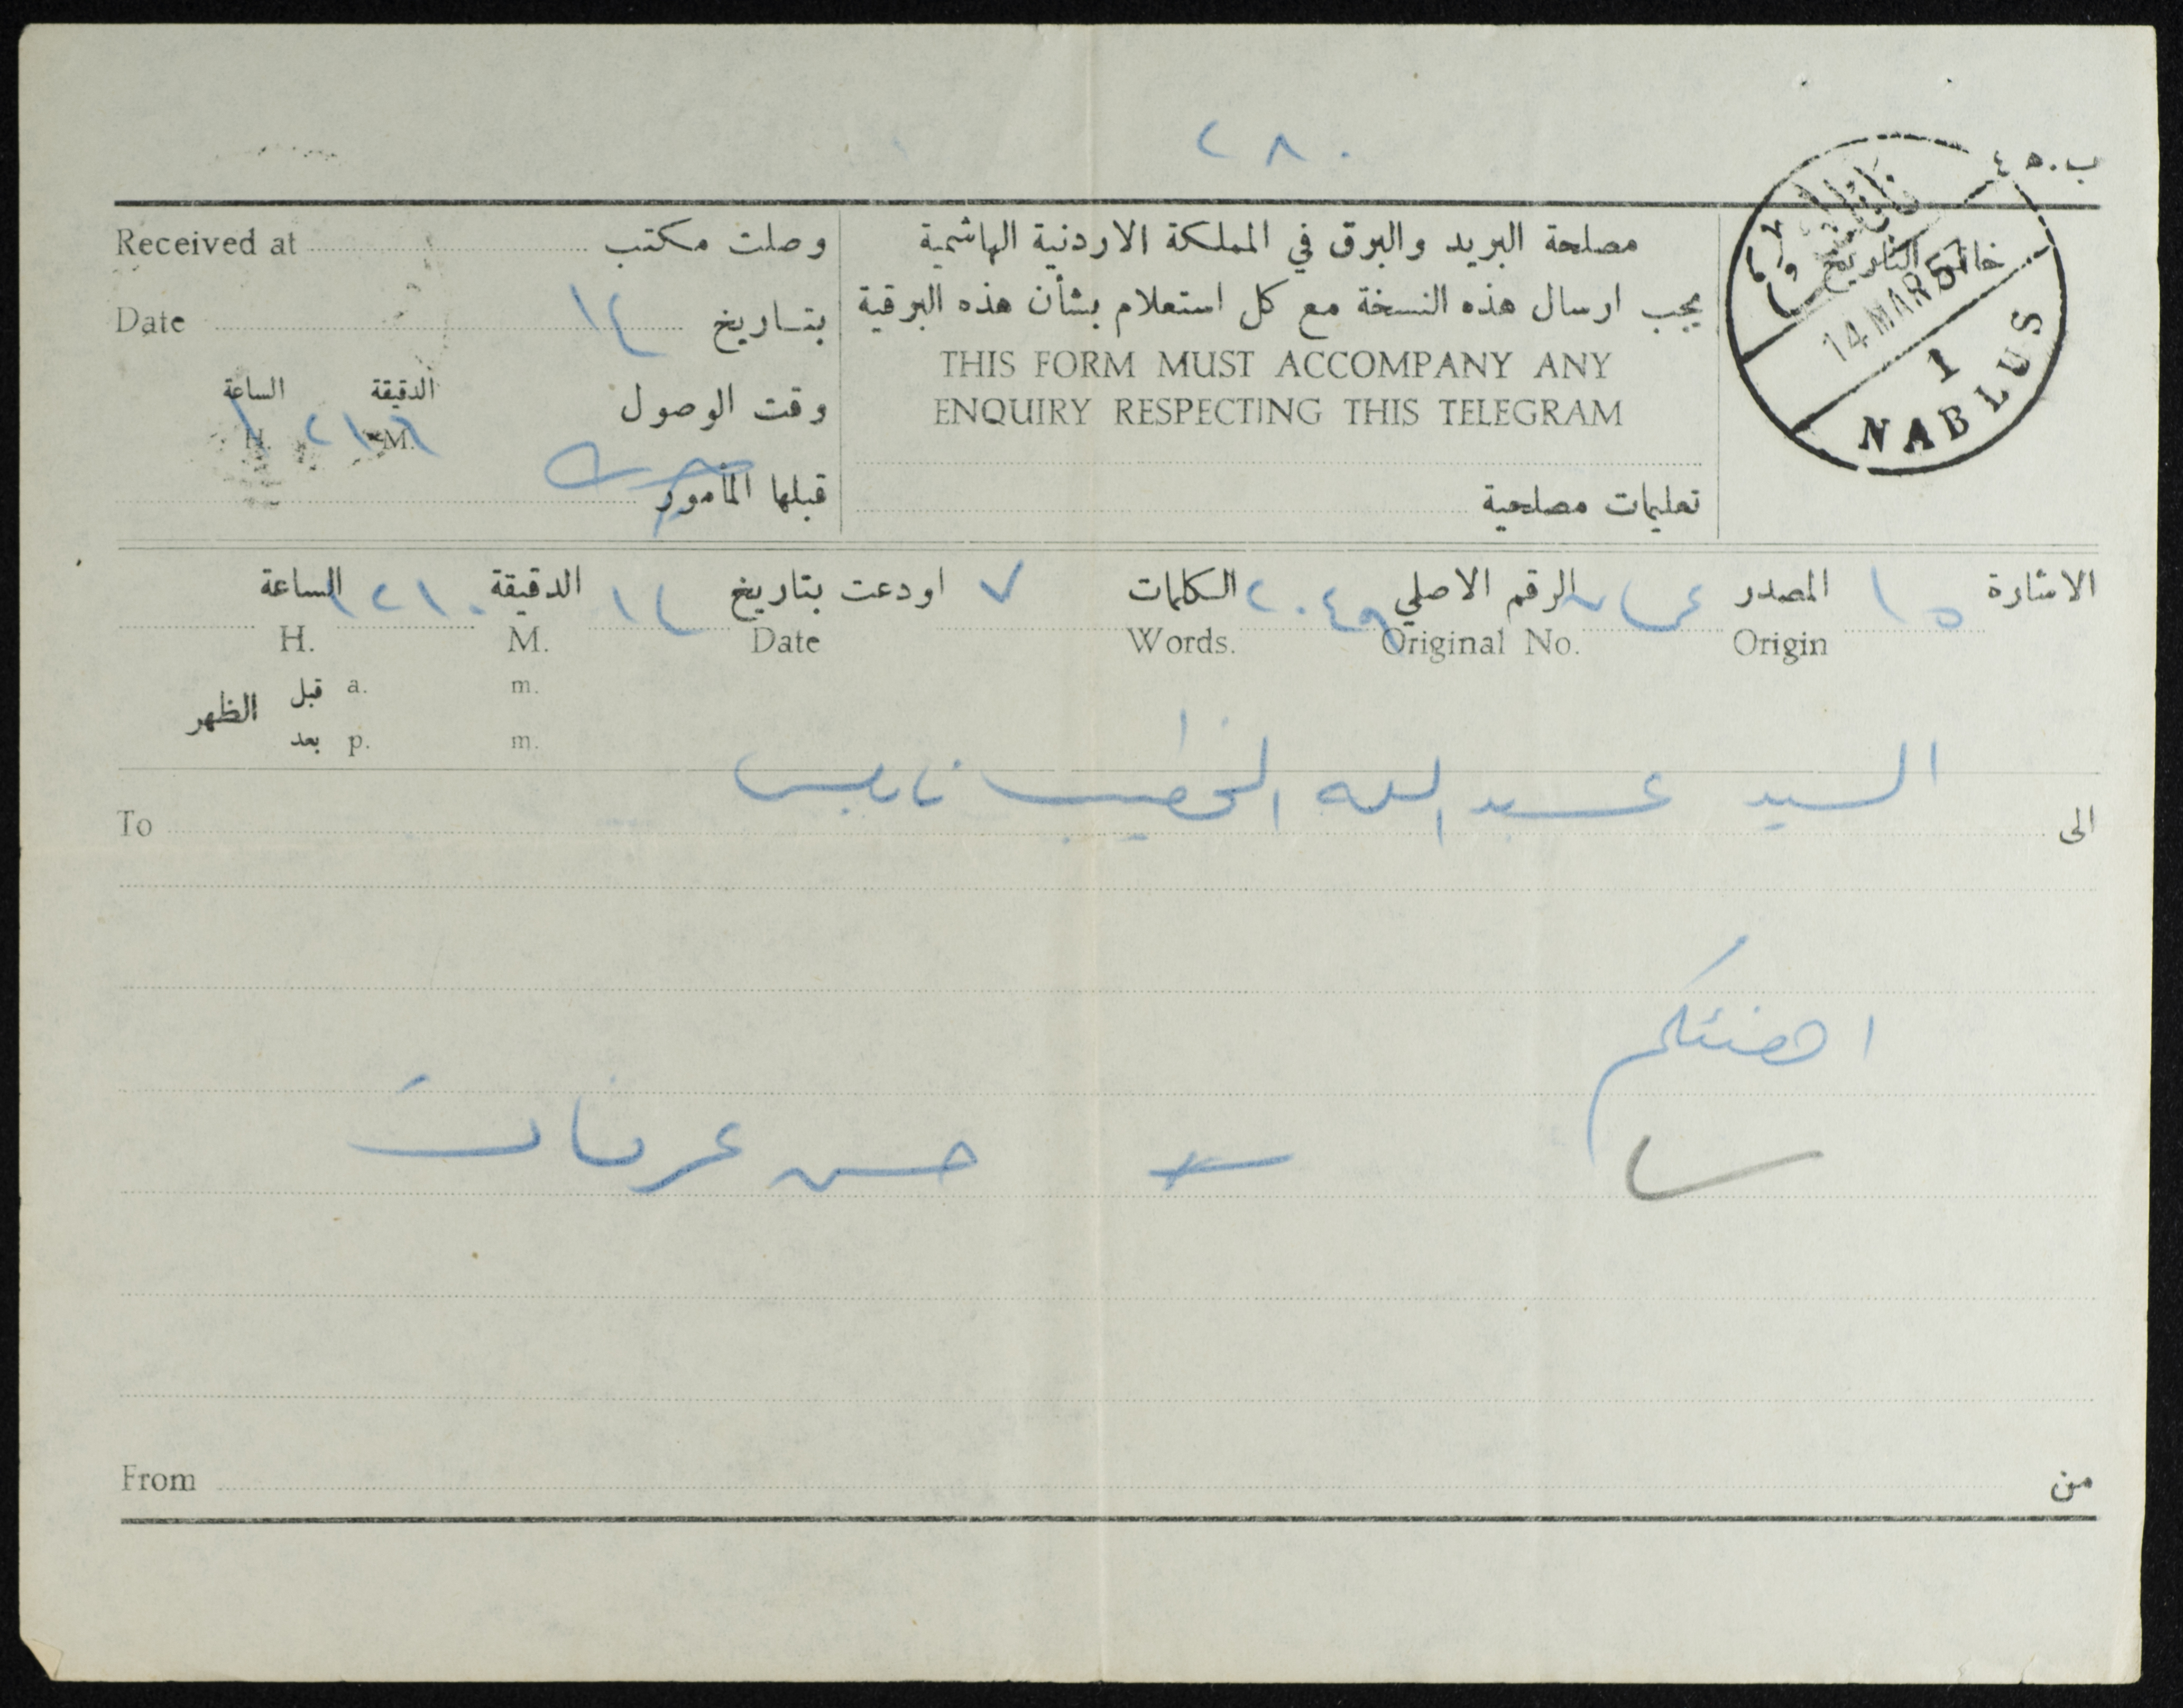 ٢٨٠
ب.٥٤
مصلحة البريد والبرق في المملكة الاردنية الهاشمية
يجب ارسال هذه النسخة مع كل استعلام بشأن هذه البرقية
THIS FORM MUST ACCOMPANY ANY
ENQUIRY RESPECTING THIS TELEGRAM
تعليمات مصلحية
خاتم التاريخ
نابلس
14 MAR 57
1
NABLUS
وصلت مكتب Received at
بتاريخ ١٤ Date
وقت الوصول الدقيقة M. الساعة H.
قبلها المأمور
الاشارة ١٥ المصدر Origin عمان الرقم الاصلي Original No. الكلمات Words. ٧ اودعت بتاريخ Date ١٤ الدقيقة M. الساعة H. ١٢١٠
قبل a. m.
الظهر
بعد p. m.
الى السيد عبد الله الخطيب نابلس To
اهنئكم
حسن عرفات
من From